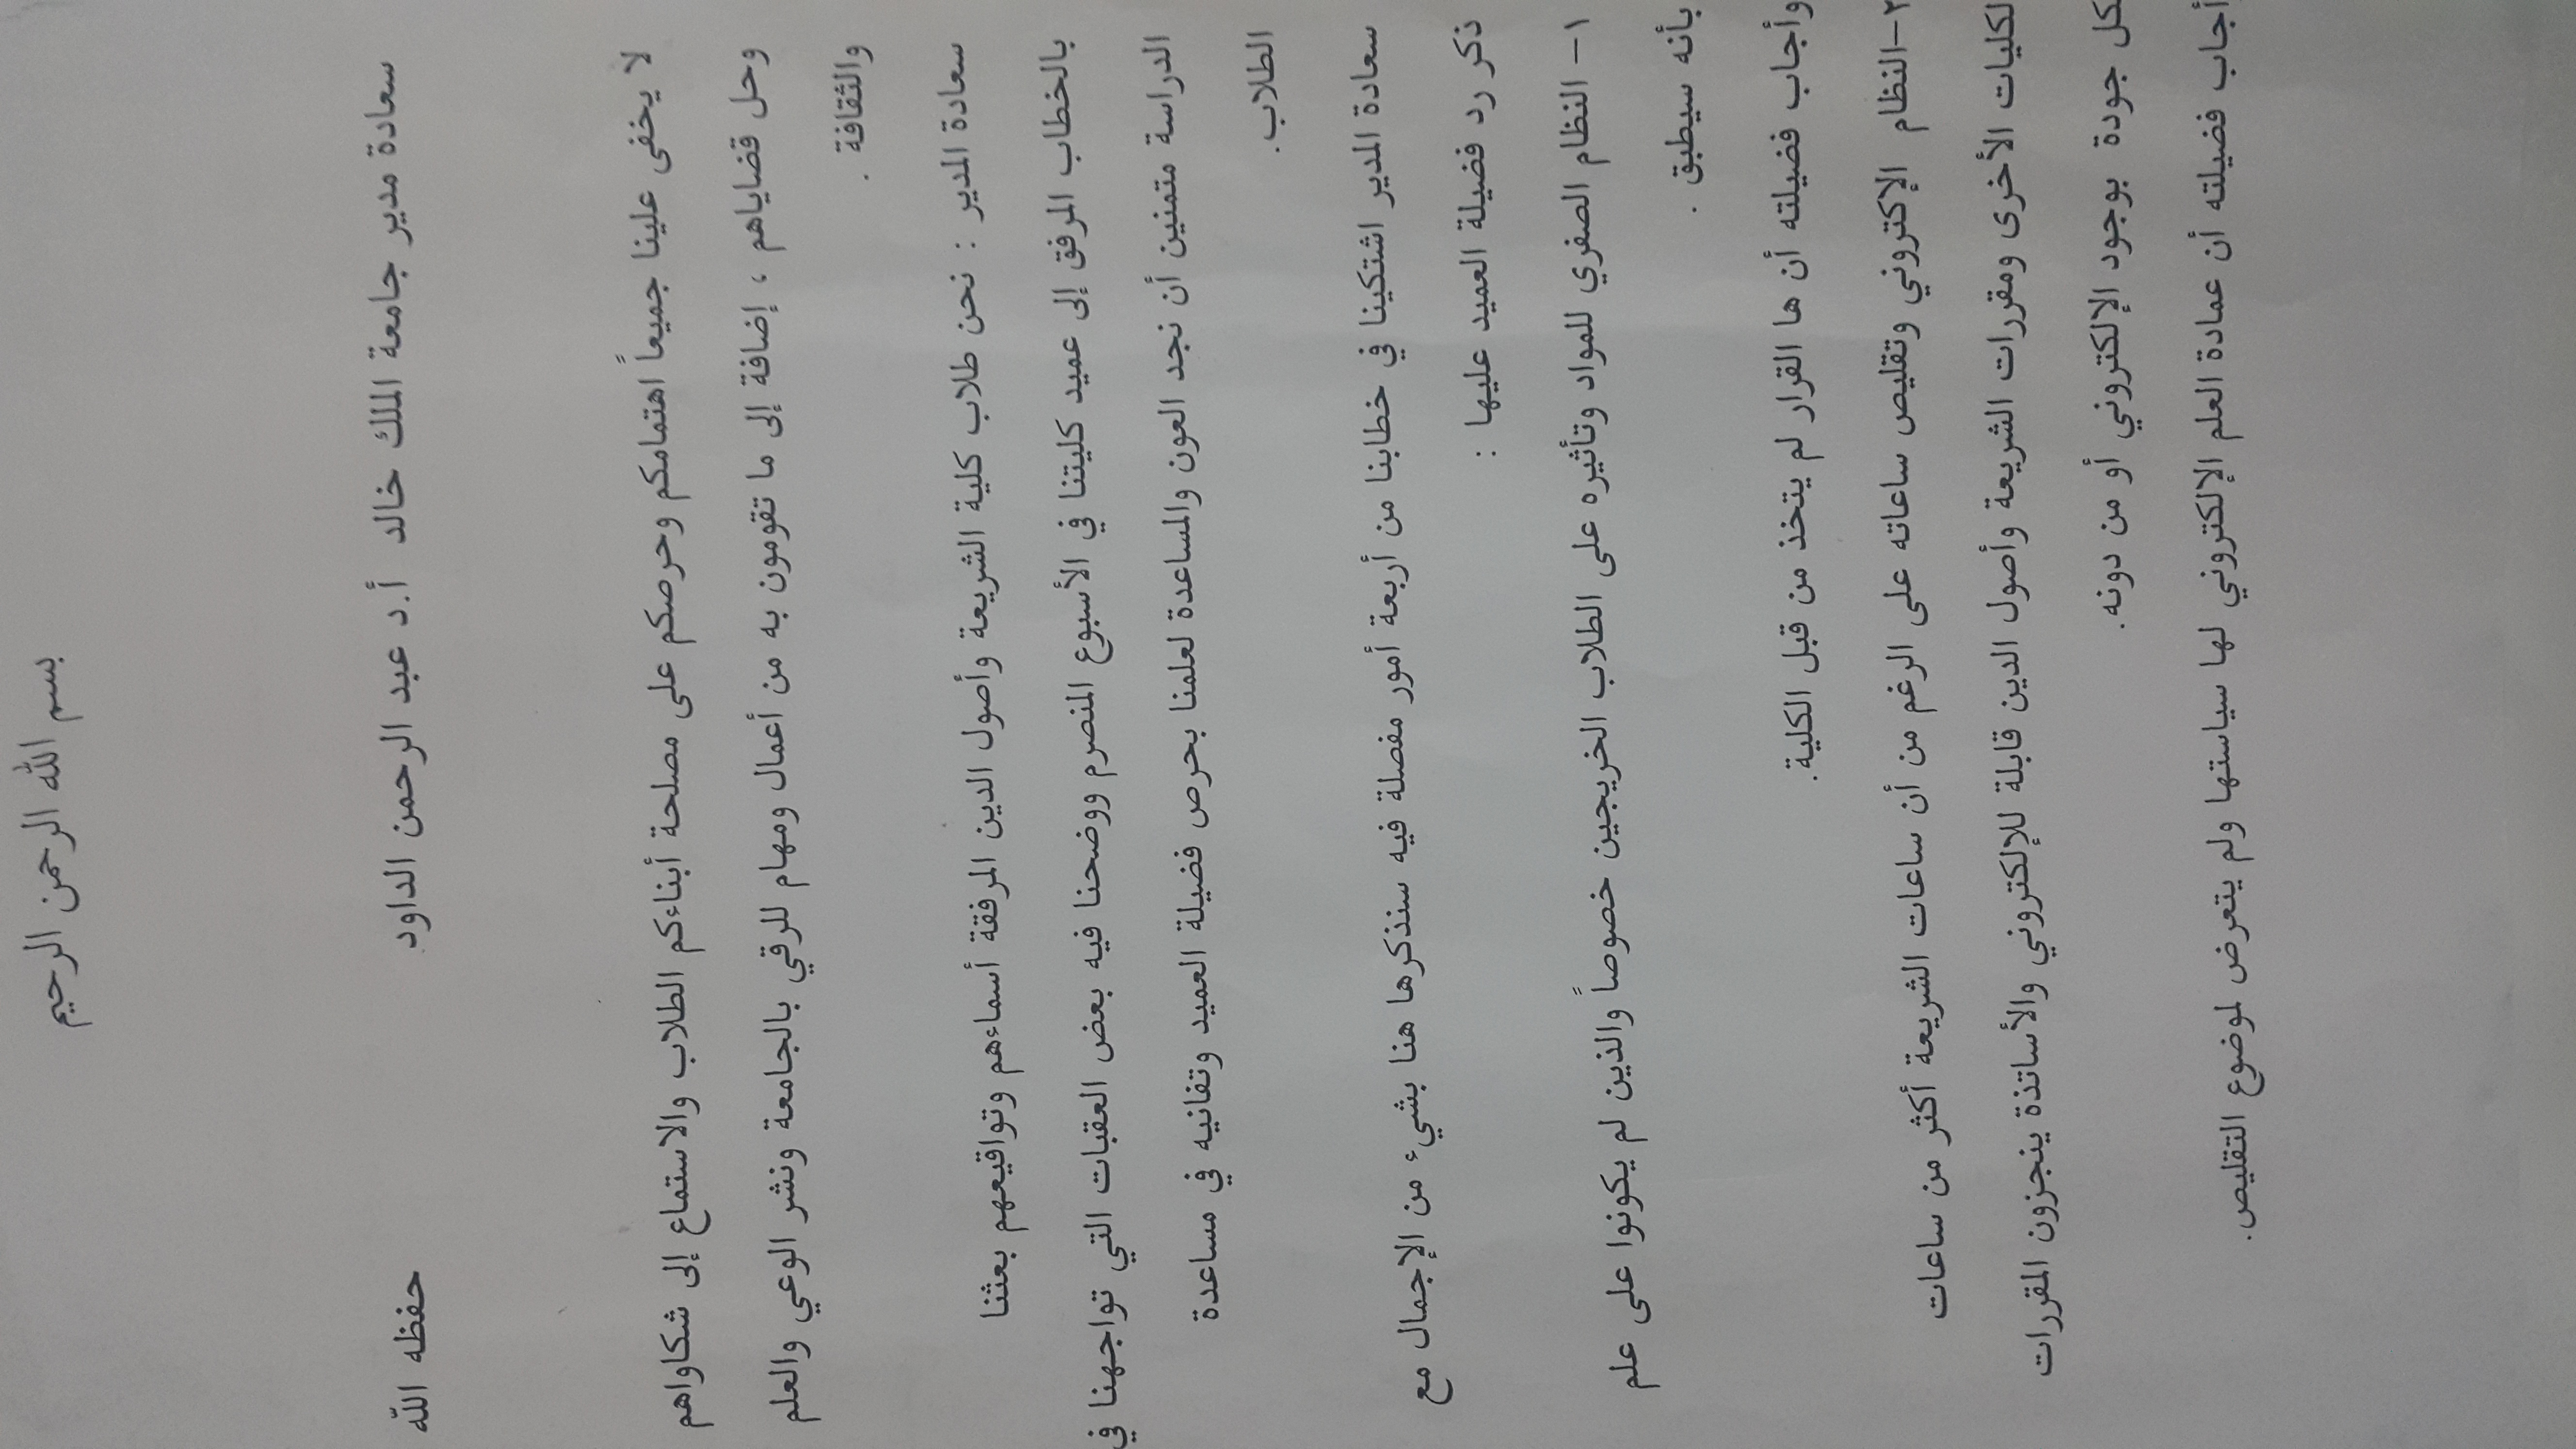 بسم الله الرحمن الرحيم
سعادة مدير جامعة الملك خالد أ.د عبد الرحمن الداود حفظه الله
لا يخفى علينا جميعاً اهتمامكم وحرصكم على مصلحة أبناءكم الطلاب والاستماع إلى شكاواهم
وحل قضاياهم ، إضافة إلى ما تقومون به من أعمال ومهام للرقي بالجامعة ونشر الوعي والعلم
والثقافة .
سعادة المدير : نحن طلاب كلية الشريعة وأصول الدين المرفقة أسماءهم وتواقيعهم بعثنا
بالخطاب المرفق إلى عميد كليتنا في الأسبوع المنصرم ووضحنا فيه بعض العقبات التي تواجهنا في
الدراسة متمنين أن نجد العون والمساعدة لعلمنا بحرص فضيلة العميد وتفانيه في مساعدة
الطلاب.
سعادة المدير اشتكينا في خطابنا من أربعة أمور مفصلة فيه سنذكرها هنا بشيء من الإجمال مع
ذكر رد فضيلة العميد عليها :
١- النظام الصفري للمواد وتأثيره على الطلاب الخريجين خصوصاً والذين لم يكونوا على علم
بأنه سيطبق .
وأجاب فضيلته أن ها القرار لم يتخذ من قبل الكلية.
٢-النظام الإكتروني وتقليص ساعاته على الرغم من أن ساعات الشريعة أكثر من ساعات
لكليات الأخرى ومقررات الشريعة وأصول الدين قابلة للإلكتروني والأساتذة ينجزون المقررات
كل جودة بوجود الإلكتروني أو من دونه.
أجاب فضيلته أن عمادة العلم الإلكتروني لها سياستها ولم يتعرض لموضوع التقليص.